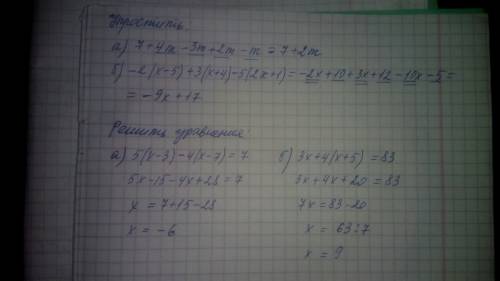 Упростить.
а) 7+4m-3m+2m-m = 7+2m
б) -2(x-5)+3(x+4)-5(2x+1) = -2x+10+3x+12-10x-5 =
= -9x+17
Решить уравнения:
а) 5(x-3)-4(x-7)=7 б) 3x+4(x+5)=83
5x-15-4x+28=7 3x+4x+20=83
x = 7+15-28 7x=83-20
x = -6 x = 63:7
x = 9